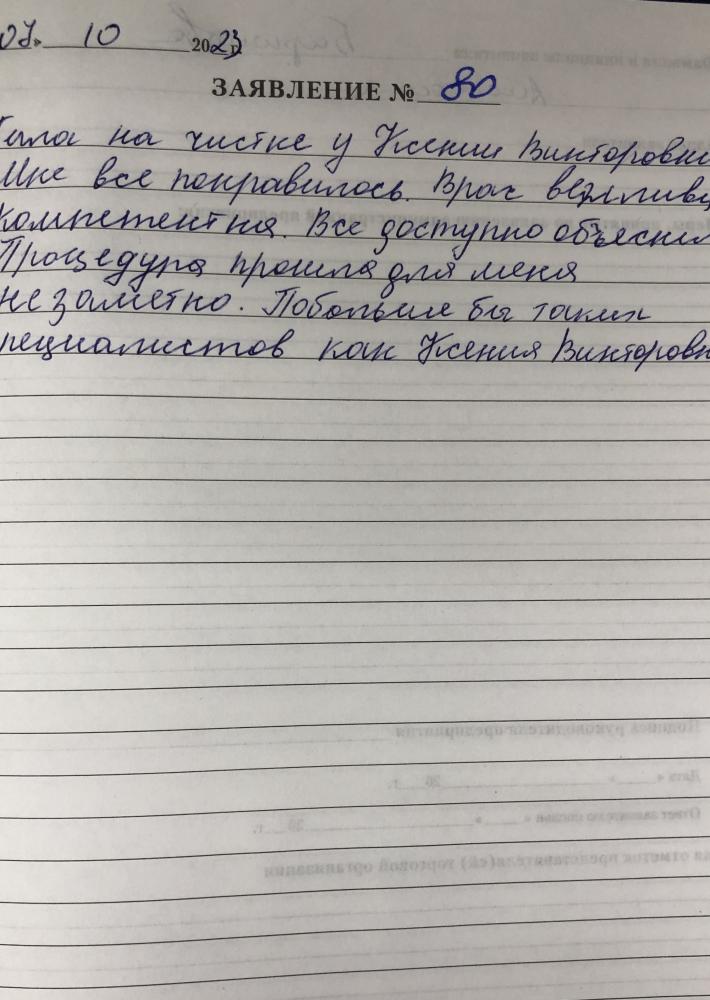 07» 10 2023 г.
ЗАЯВЛЕНИЕ № 80
Была на чистке у Ксении Викторовн
Мне все понравилось. Врач вежлива
компетентна. Все доступно объяснил
Процедура прошла для меня
незаметно. Побольше бы таких
специалистов как Ксения Викторовн
Подпись руководителя предприятия
Дата « » 20 г.